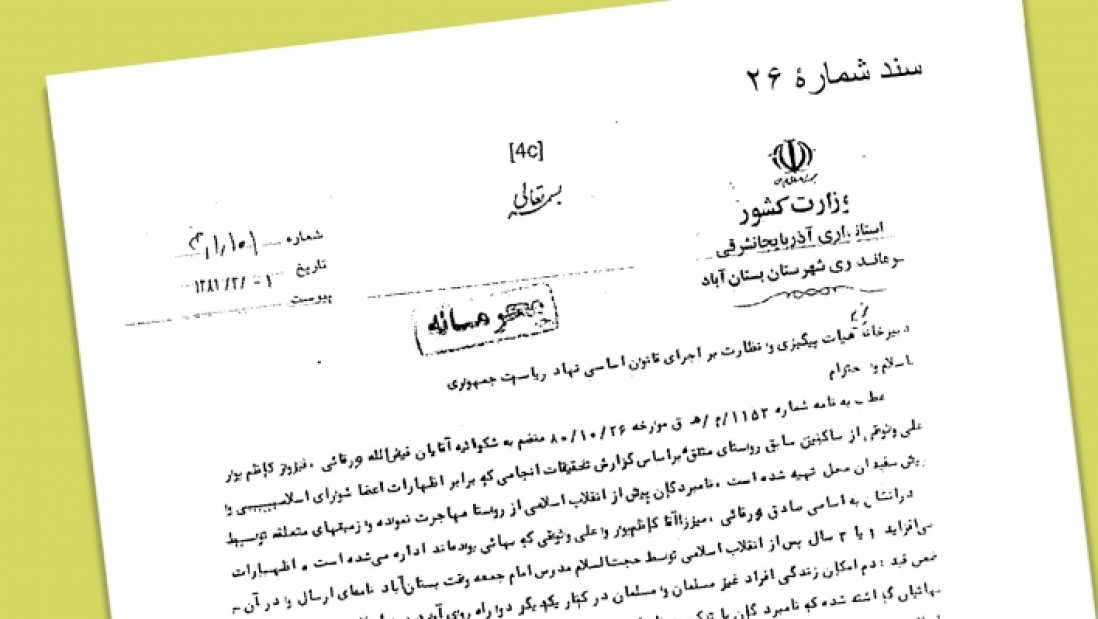 سند شمارهٔ ۲۶
[4c]
بسمه تعالی
وزارت کشور
استانداری آذربایجانشرقی
فرمانداری شهرستان بستان آباد
شماره
تاریخ
پیوست
محرمانه
دبیرخانه هیات پیگیری و نظارت بر اجرای قانون اساسی نهاد ریاست جمهوری
باسلام و احترام
عطف به نامه شماره ۱۱۵۳/م/هـ ق مورخه ۸۰/۱۰/۲۶ منضم به شکوائیه آقایان فیض‌الله ورقائی ، فیروز کاظم پور
علی وثوقی از ساکنین سابق روستای متنق براساس گزارش تحقیقات انجامی که برابر اظهارات اعضا شورای اسلامی و
ریش سفیدان محل تهیه شده است ، نامبردگان پیش از انقلاب اسلامی از روستا مهاجرت نموده و زمینهای متعلقه توسط
درانشان به اسامی صادق ورقائی ، میرزاآقا کاظم‌پور و علی وثیقی که بهائی بوده‌اند اداره می‌شده است . اظهارات
می‌افزاید ۱ یا ۲ سال پس از انقلاب اسلامی توسط حجت‌السلام مدرس امام جمعه وقت بستان‌آباد نامه‌ای ارسال و در آن
ضمن قید : دم امکان زندگی افراد غیر مسلمان و مسلمان در کنار یکدیگر دو راه روی
بهائیان گذاشته شده که نامبردگان یا